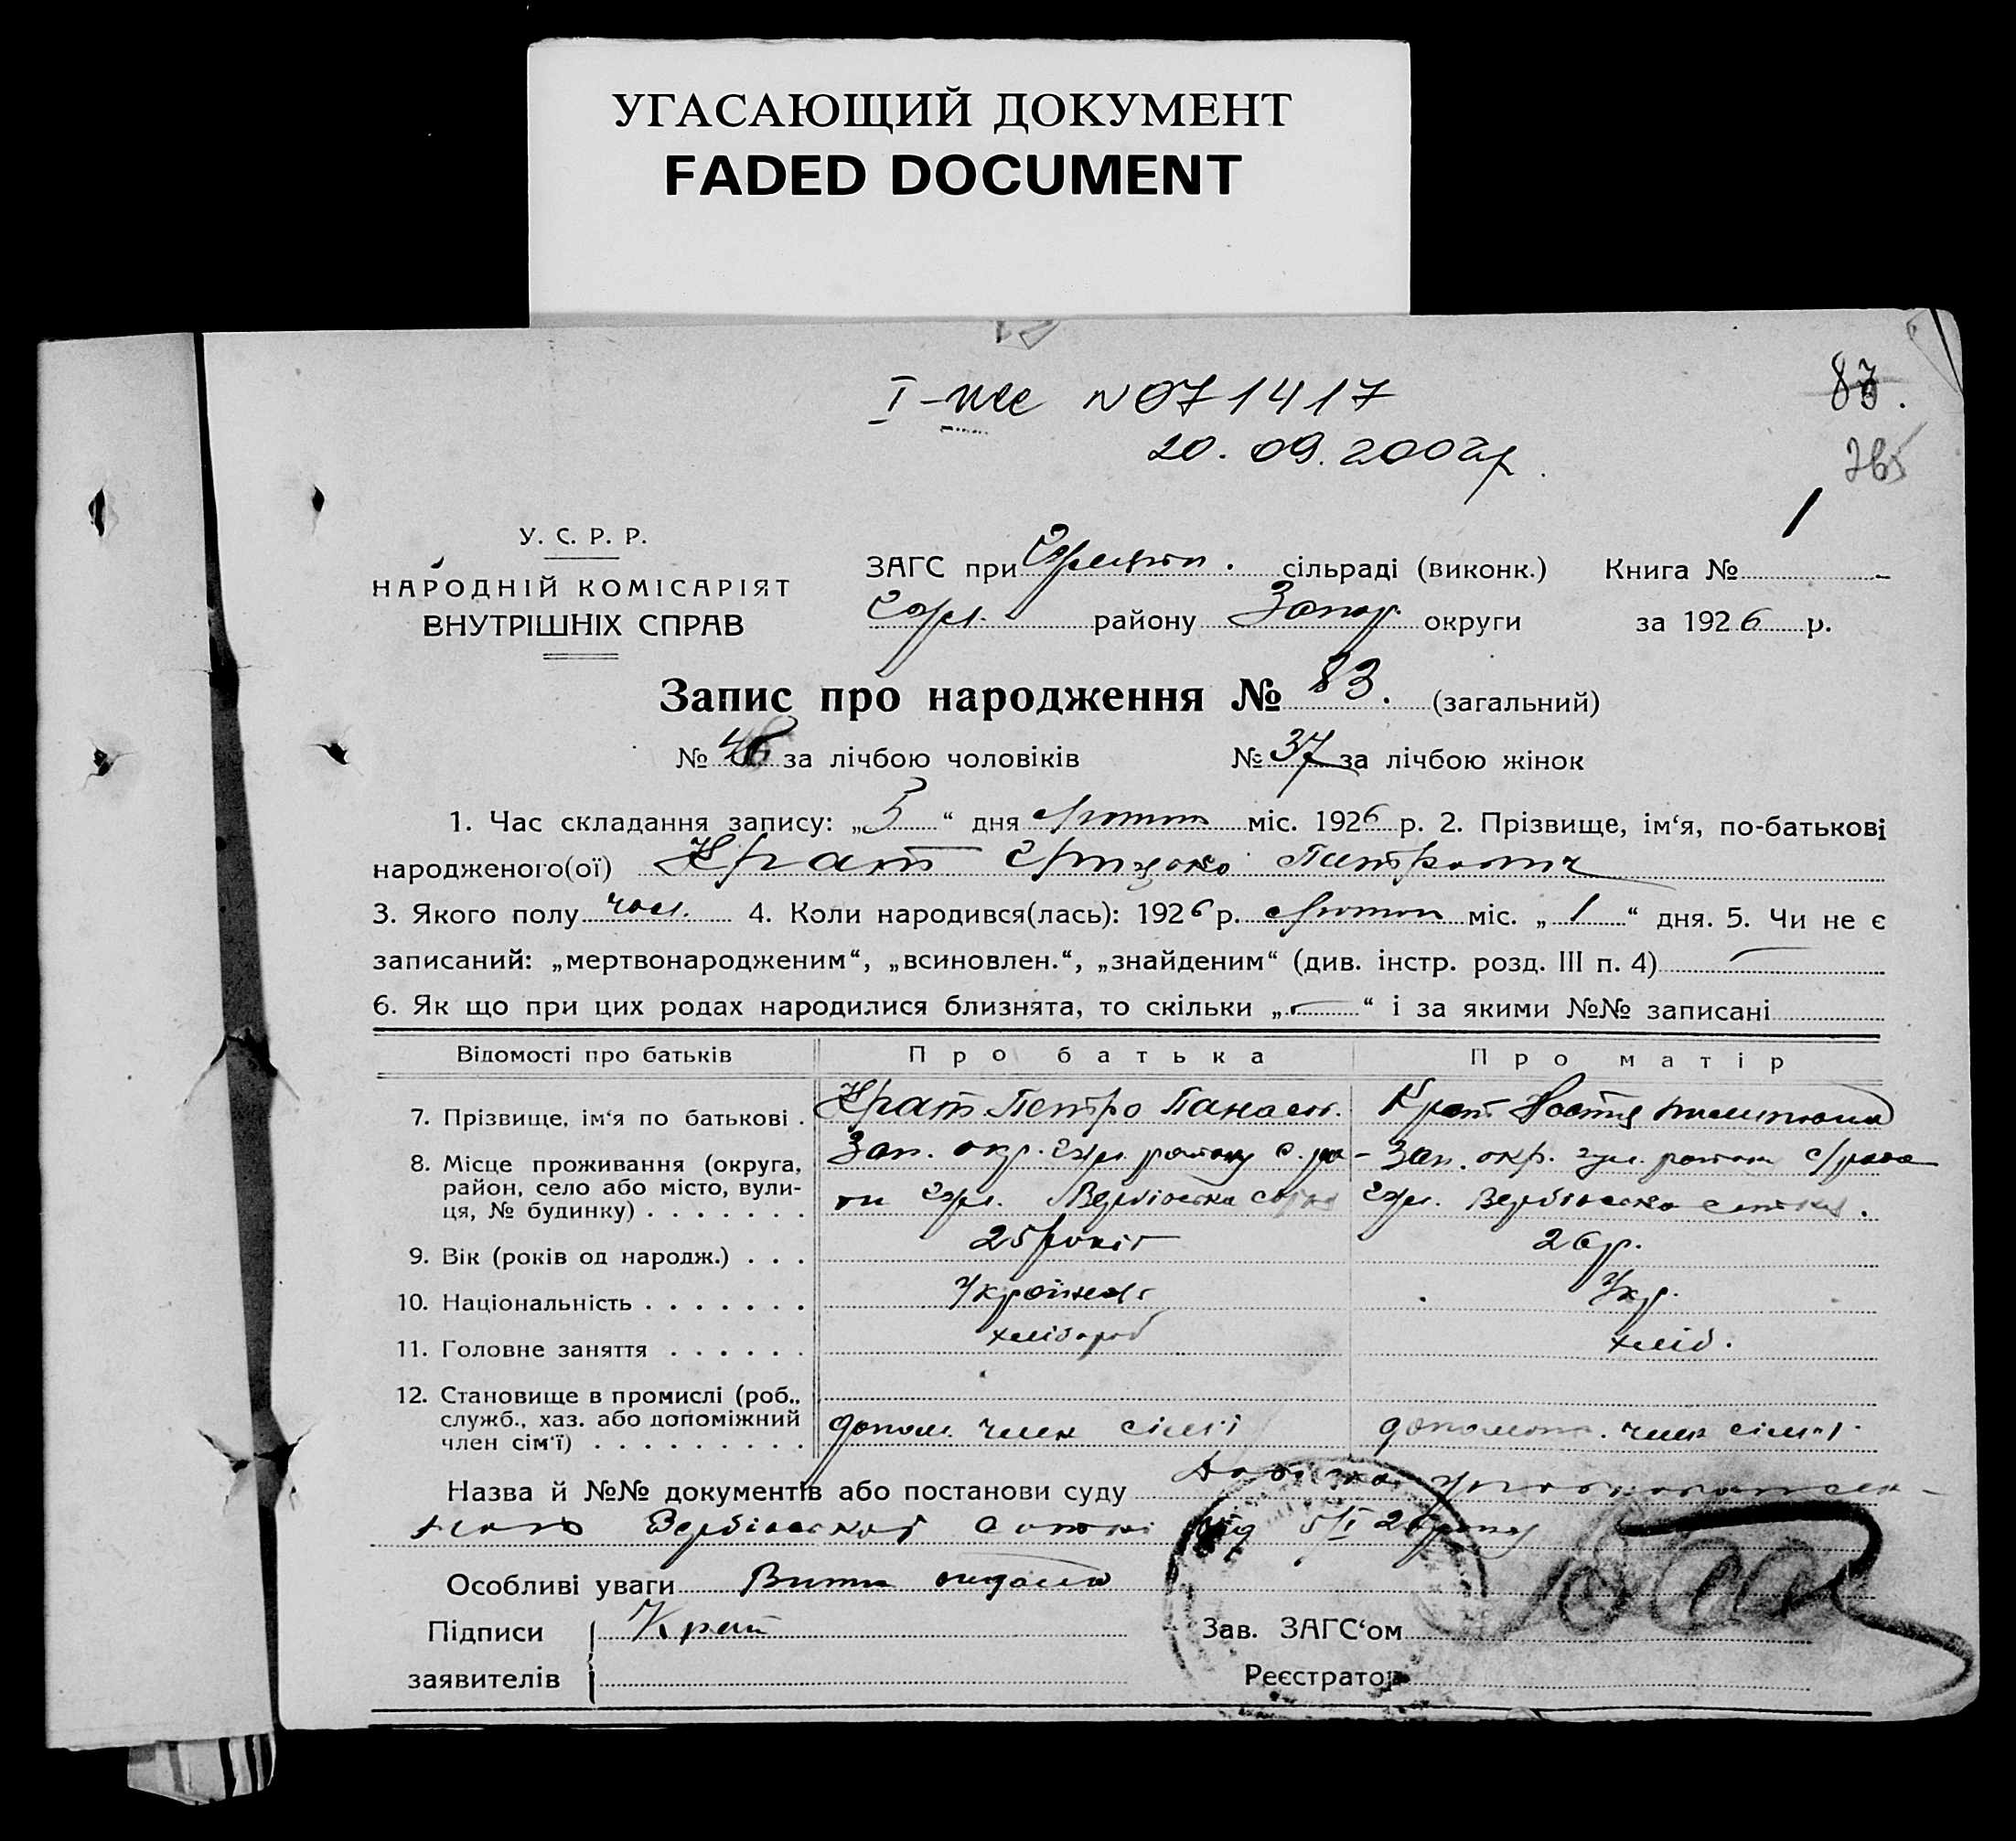 УГАСАЮЩИЙ ДОКУМЕНТ
FADED DOCUMENT
83.
I- N071417
20. 09. 2002р.
265
1
У. С. Р. Р.
НАРОДНІЙ КОМІСАРІЯТ
ВНУТРІШНІХ СПРАВ
ЗАГС при сільраді (виконк.) Книга №
району Запор. округи за 1926 р.
Запис про народження № 83. (загальний)
№ 46 за лічбою чоловіків № 37 за лічбою жінок
1. Час складання запису: „5“ дня міс. 1926 р. 2. Прізвище, ім‘я, по-батькові
народженого(ої) Крат Грицько Петрович
3. Якого полу чол. 4. Коли народився(лась): 1926 р. міс. „1“ дня. 5. Чи не є
записаний: „мертвонародженим“, „всиновлен.“, „знайденим“ (див. інстр. розд. III п. 4) —
6. Як що при цих родах народилися близнята, то скільки „—“ і за якими №№ записані
Відомості про батьків Про батька Про матір
7. Прізвище, ім‘я по батькові . Крат Петро Панасов. Крат Настя
8. Місце проживання (округа, район, село або місто, вулиця, № будинку) . . . . . . . Зап. окр. району Вербівська Зап. окр. Вербівська сотня.
9. Вік (років од народж.) . . . 25 років 26 р.
10. Національність . . . . . . . Українець Укр.
11. Головне заняття . . . . . . хлібороб хліб.
12. Становище в промислі (роб., служб., хаз. або допоміжний член сім‘ї) . . . . . . . . . допом. член сім'ї допоможн. член сім'ї
Назва й №№ документів або постанови суду Довідка
Вербівської сотні від 5/I 26 року
Особливі уваги Витяг видано
Підписи Крат Зав. ЗАГС‘ом
заявителів Реєстратор